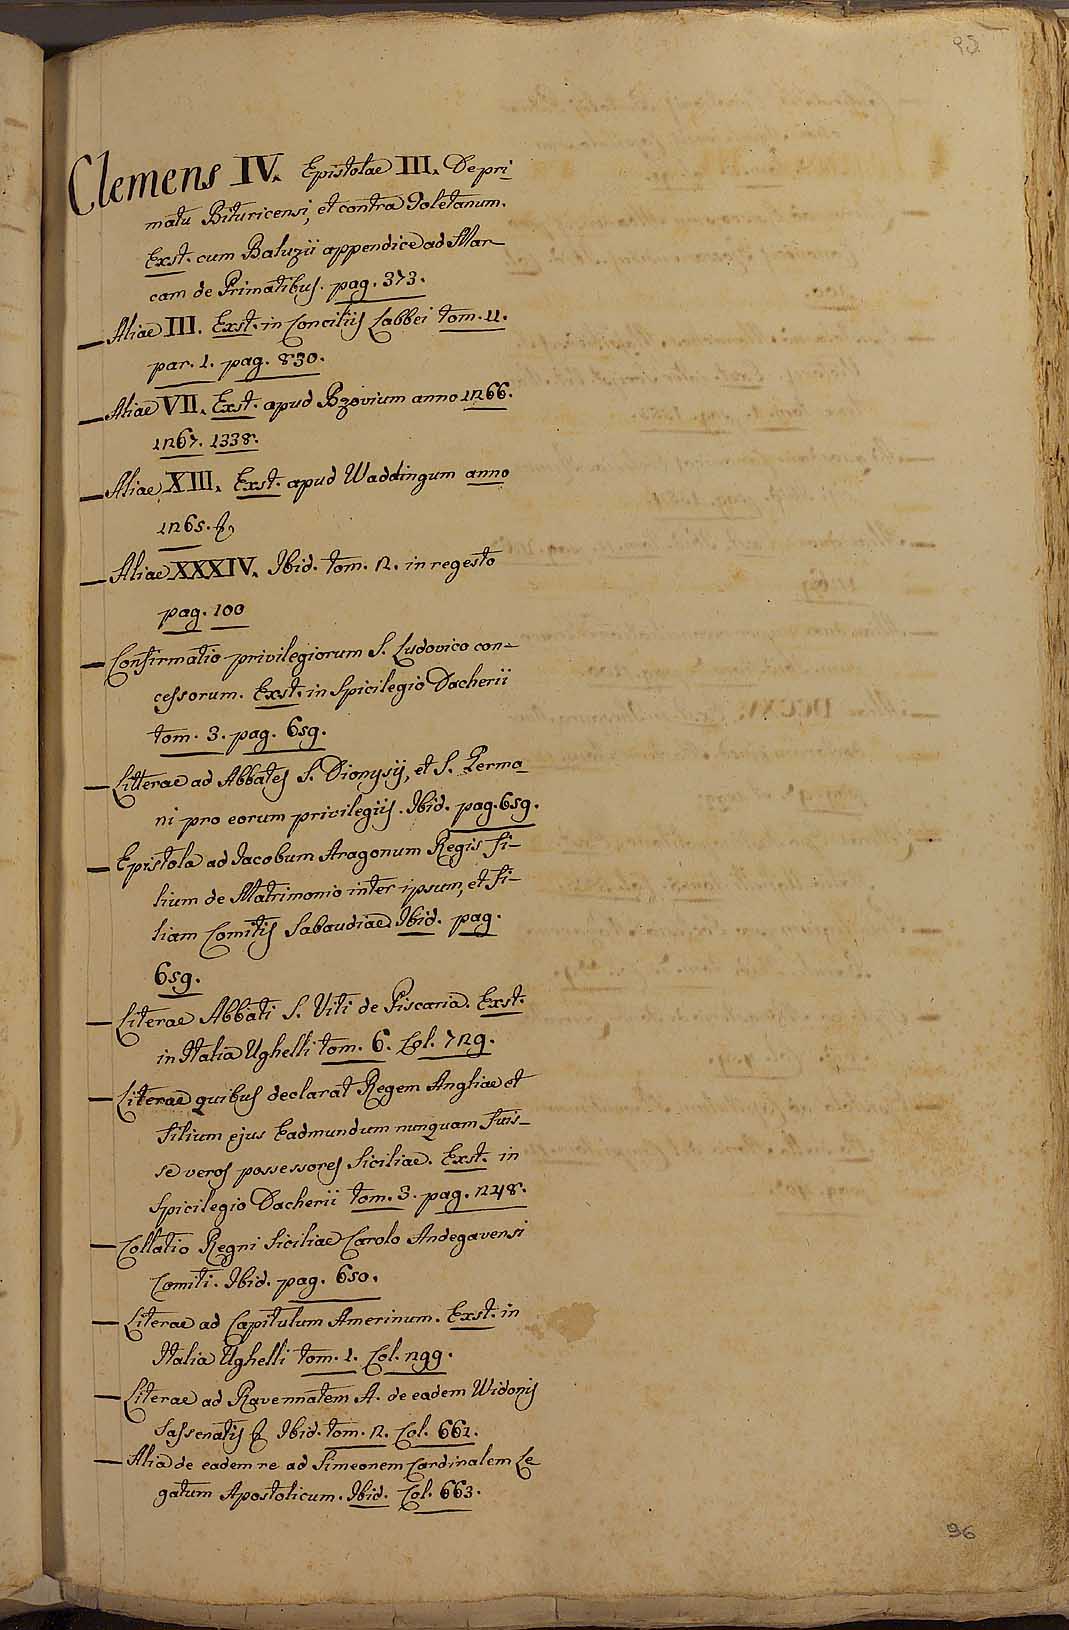 95
Clemens IV. Epistolae III. De pri-
matu Bituricensi, et contra Toletanum.
Exst. cum Baluzii appendice ad Mar-
cam de Primatibus. pag. 373.
— Aliae III. Exst. in Conciliis Labbei tom. 11.
par. 1. pag. 830.
— Aliae VII. Exst. apud Bzovium anno 1266.
1267. 1338.
— Aliae XIII. Exst. apud Waddingum anno
1265. &
— Aliae XXXIV. Ibid. tom. 2. in regesto
pag. 100
— Confirmatio privilegiorum S. Ludovico con-
cessorum. Exst. in Spicilegio Dacherii
tom. 3. pag. 659.
— Litterae ad Abbates S. Dionysij, et S. Germa-
ni pro eorum privilegiis. Ibid. pag. 659.
— Epistola ad Jacobum Aragonum Regis fi-
lium de Matrimonio inter ipsum, et fi-
liam Comitis Sabaudiae. Ibid. pag.
659.
— Literae Abbati S. Viti de Piscaria. Exst.
in Italia Ughelli tom. 6. Col. 729.
— Literae quibus declarat Regem Angliae et
filium ejus Eadmundum nunquam fuis-
se veros possessores Siciliae. Exst. in
Spicilegio Dacherii tom. 3. pag. 248.
— Collatio Regni Siciliae Carolo Andegavensi
Comiti. Ibid. pag. 650.
— Literae ad Capitulum Amerinum. Exst. in
Italia Ughelli tom. 1. Col. 299.
— Literae ad Ravennatem A. de eadem Widonis
Sassenatis & Ibid. tom. 2. Col. 662.
— Alia de eadem re ad Simeonem Cardinalem Le
gatum Apostolicum. Ibid. Col. 663.
96